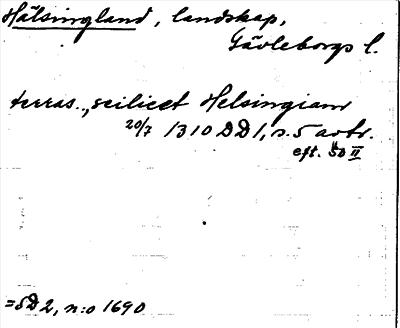 Hälsingland, landskap,
Gävleborgs l.
terras., scilicet Helsingiam
20/7 1310 DD1, s. 5 avtr.
eft. SD II
=SD2, n:o 1690